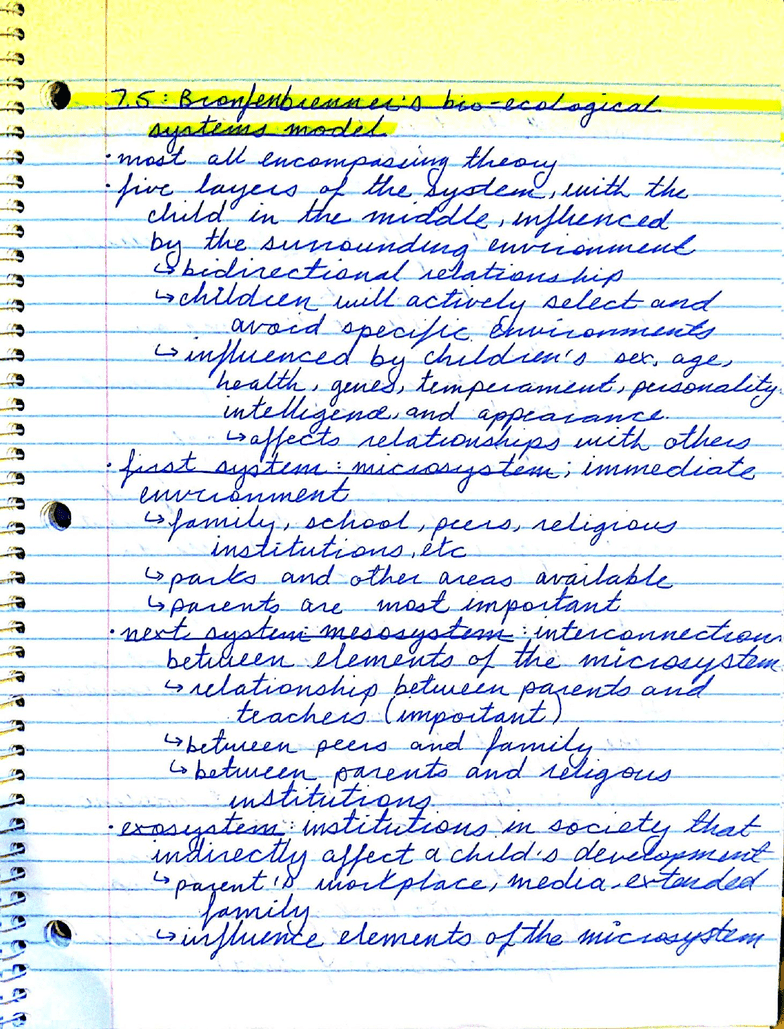 7.5: Bronfenbrenner's bio-ecological
systems model
· most all encompasing theory
· five layers of the system, with the
child in the middle, influenced
by the surrounding environment
↳ bidirectional relationship
↳ children will actively select and
avoid specific environments
↳ influenced by children's sex, age,
health, genes, temperament, personality
intelligence, and appearance.
↳ affects relationships with others
· first system: microsystem; immediate
environment
↳ family, school, peers, religious
institutions, etc
↳ parks and other areas available
↳ parents are most important
· next system: mesosystem: interconnections
between elements of the microsystem
↳ relationship between parents and
teachers (important)
↳ between peers and family
↳ between parents and religous
institutions
· exosystem: institutions in society that
indirectly affect a child's development
↳ parent's workplace, media, extended
family
↳ influence elements of the microsystem